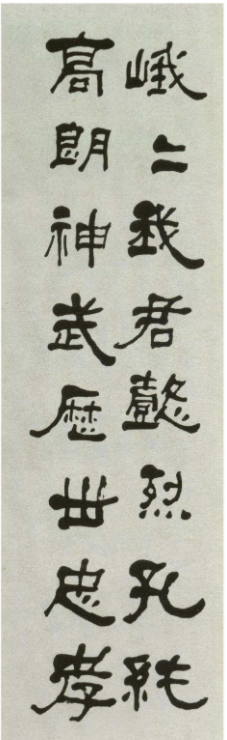 峨〻我君懿烈孔純
高朗神武歷世忠孝